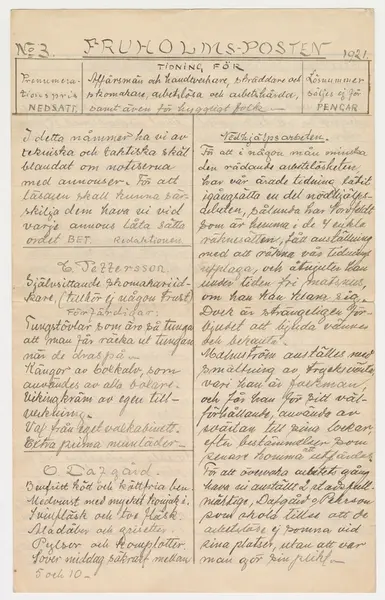 No 3. FRUHOLMS-POSTEN 1921.
TIDNING FÖR
Prenumera-
tionspris
NEDSATT.
Affärsmän och handtverkare, skräddare och
skomakare, arbetslösa och arbetshärdar,
samt även för hyggligt folk
Lösnummer
säljes ej för
PENGAR
I detta nummer ha vi av
tekniska och taktiska skäl
blandat om notiserna
med annonser. För att
läsaren skall kunna sär-
skilja dem hava vi vid
varje annons låta sätta
ordet BET. Redaktionen
C. Pettersson.
Självsittande skomakeriid-
kare, (tillhör ej någon trust)
Förfärdigar:
Tungstövlar som äro så tunga
att man får räcka ut tungan
när de dras på.
Kängor av bockkalv, som
användes av alla
Vikingkräm av egen till-
verkning.
Vax från eget vaxkabinett.
Extra prima
O. Dazgård.
kött och köttfria ben
Medvurst med mycket
Svinfläsk och
Blodåder och
Pylser och komplotter
Sover middag säkrast mellan
5 och 10 -
Nödhjälpsarbeten.
För att i någon mån minska
den rådande arbetslösheten
har vår ärade tidning låtit
igångsätta en del nödhjälps-
arbeten, sålunda har
som är hemma i de 4 enkla
räknesätten, fått anställning
med att räkna vår tidnings
upplaga, och åtnjuter han
under tiden fri matsäck,
om han kan
Dock är strängeligen för-
bjudet att bjuda vänner
och bekanta.
Malmström anställes med
smältning av
vari han är fackman,
och får han för sitt väl-
förhållande, använda av
till sina lockar,
efter bestämmelser som
senare komma utfärdas.
För att övervaka arbetets gång
hava vi anställt 2 st
mäktige, Dafgård & Peterson
som skola tillse att de
arbetslöse ej somna vid
sina platser, utan att var
man gör sin plikt.